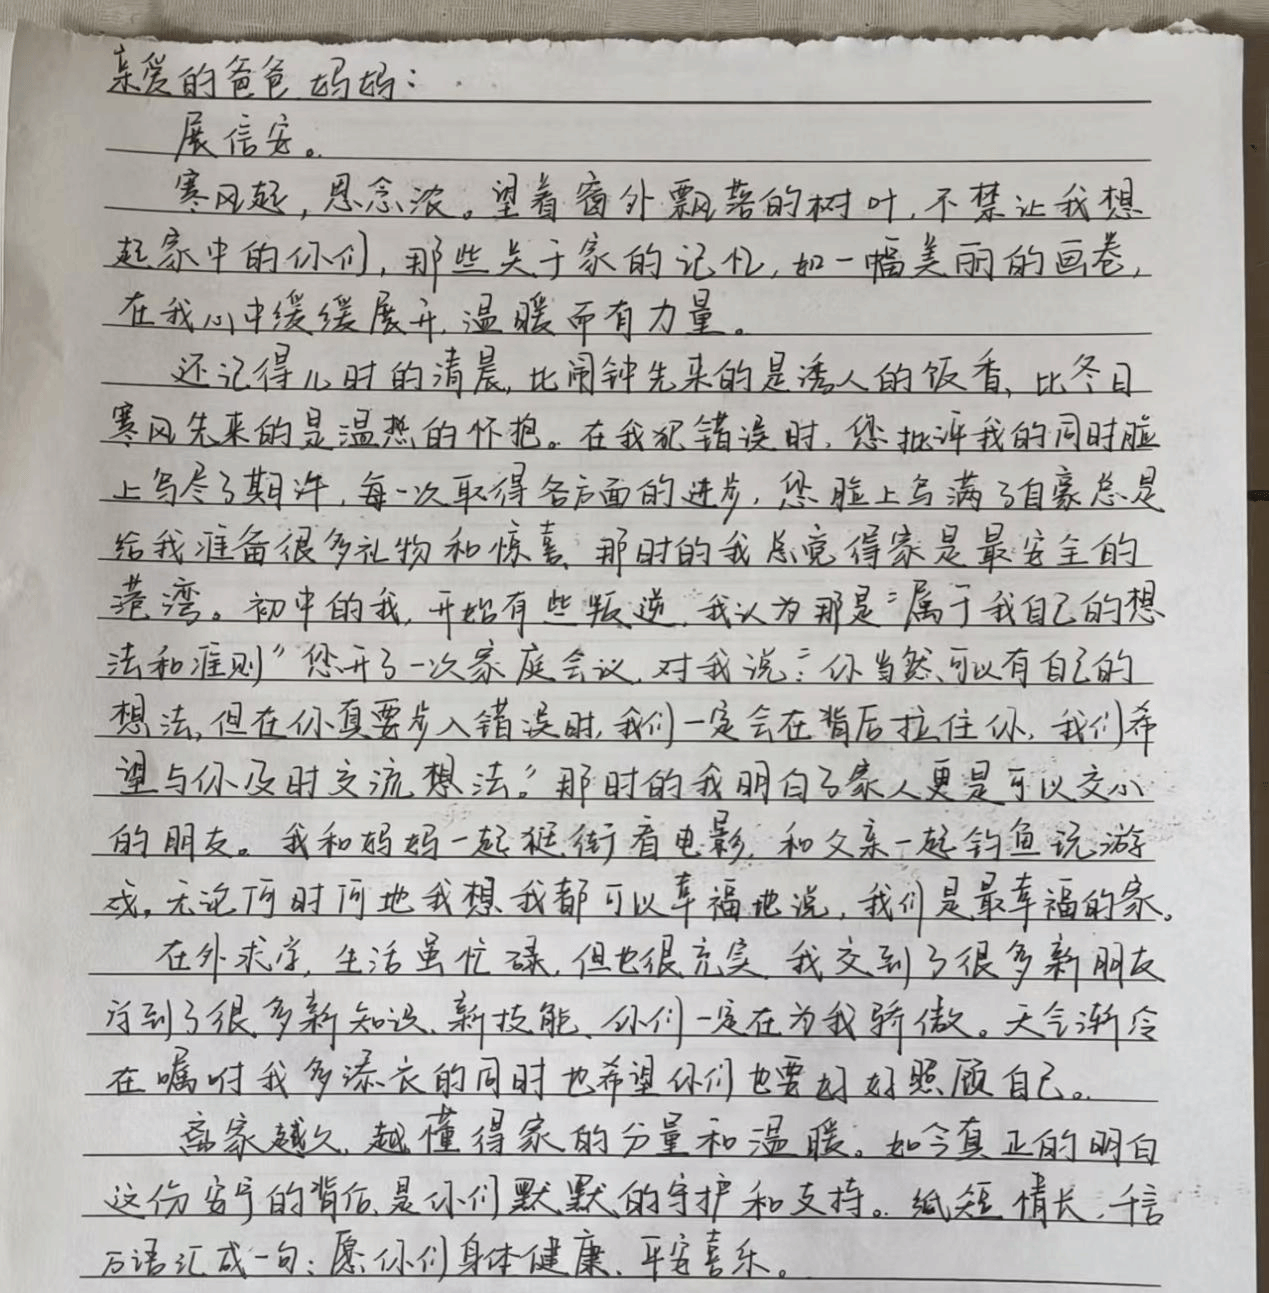 亲爱的爸爸妈妈：
展信安。
寒风起，思念浓。望着窗外飘落的树叶，不禁让我想
起家中的你们，那些关于家的记忆，如一幅美丽的画卷，
在我心中缓缓展开，温暖而有力量。
还记得儿时的清晨，比闹钟先来的是诱人的饭香、比冬日
寒风先来的是温热的怀抱。在我犯错误时，您批评我的同时脸
上写尽了期许，每一次取得各方面的进步，您脸上写满了自豪总是
给我准备很多礼物和惊喜、那时的我总觉得家是最安全的
港湾。初中的我，开始有些叛逆，我认为那是“属于我自己的想
法和准则”您开了一次家庭会议，对我说：“你当然可以有自己的
想法，但在你真要步入错误时，我们一定会在背后拉住你，我们希
望与你及时交流想法。”那时的我明白了家人更是可以交心
的朋友。我和妈妈一起逛街看电影，和父亲一起钓鱼玩游
戏，无论何时何地我想我都可以幸福地说，我们是最幸福的家。
在外求学，生活虽忙碌，但也很充实，我交到了很多新朋友
学到了很多新知识、新技能、你们一定在为我骄傲。天气渐冷
在嘱咐我多添衣的同时也希望你们也要好好照顾自己。
离家越久，越懂得家的分量和温暖。如今真正的明白
这份安宁的背后是你们默默的守护和支持。纸短情长，千言
万语汇成一句：愿你们身体健康、平安喜乐。